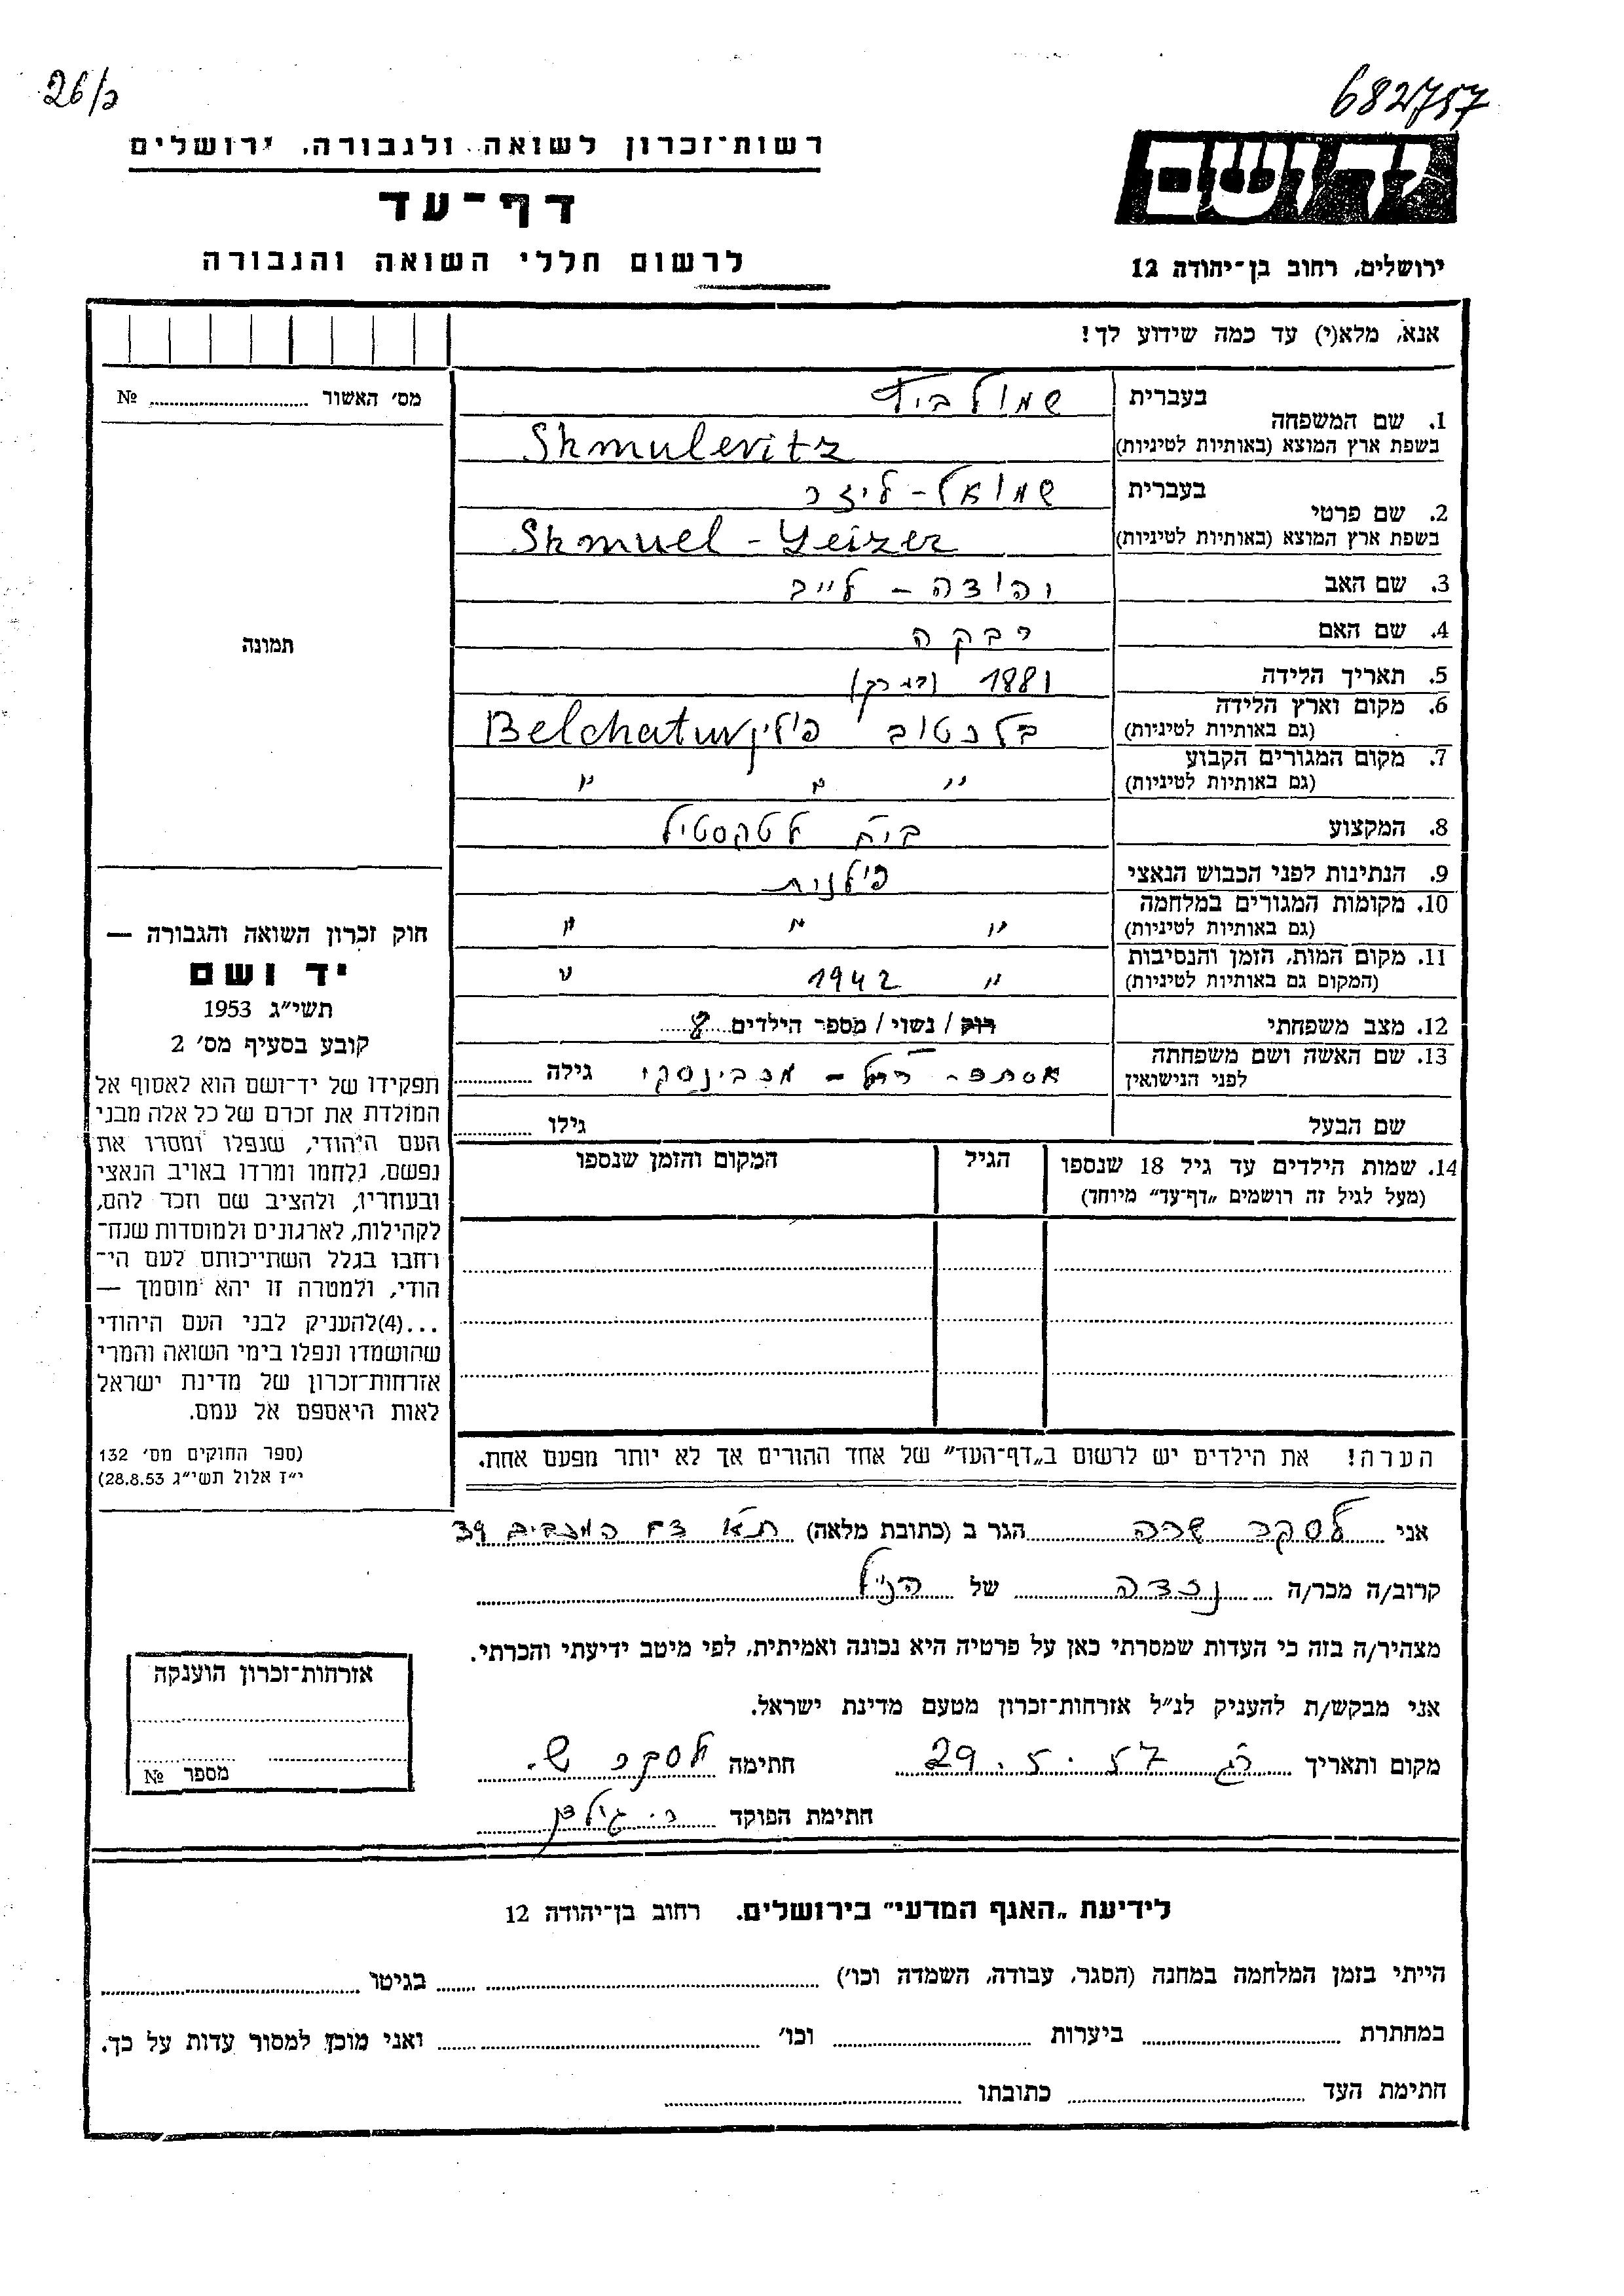 26/כ
682757
רשות־זכרון לשואה ולגבורה, ירושלים
דף־עד
לרשום חללי השואה והגבורה
יד ושם
ירושלים, רחוב בן־יהודה 12
אנא, מלא(י) עד כמה שידוע לך!
מס׳ האשור № 
תמונה
1. שם המשפחה
בעברית שמולביץ
בשפת ארץ המוצא (באותיות לטיניות) Shmulevitz
2. שם פרטי
בעברית שמואל - ליזר
בשפת ארץ המוצא (באותיות לטיניות) Shmuel - Leizer
3. שם האב יהודה - לייב
4. שם האם רבקה
5. תאריך הלידה 1881 (בערך)
6. מקום וארץ הלידה
(גם באותיות לטיניות) בלכטוב פולין Belchatuw
7. מקום המגורים הקבוע
(גם באותיות לטיניות) " " "
8. המקצוע ביח לטקסטיל
9. הנתינות לפני הכבוש הנאצי פולנית
10. מקומות המגורים במלחמה
(גם באותיות לטיניות) " " "
11. מקום המות, הזמן והנסיבות
(המקום גם באותיות לטיניות) " 1942 "
12. מצב משפחתי רוק / נשוי / מספר הילדים 8
13. שם האשה ושם משפחתה
לפני הנישואין אסתר - רחל - גילה
שם הבעל גילו
14. שמות הילדים עד גיל 18 שנספו
(מעל לגיל זה רושמים „דף־עד״ מיוחד)
הגיל
המקום והזמן שנספו
חוק זכרון השואה והגבורה —
יד ושם
תשי״ג 1953
קובע בסעיף מס׳ 2
תפקידו של יד־ושם הוא לאסוף אל
המולדת את זכרם של כל אלה מבני
העם היהודי, שנפלו ומסרו את
נפשם, נלחמו ומרדו באויב הנאצי
ובעוזריו, ולהציב שם וזכר להם,
לקהילות, לארגונים ולמוסדות שנח־
רחבו בגלל השתייכותם לעם הי־
הודי, ולמטרה זו יהא מוסמך —
...(4)להעניק לבני העם היהודי
שהושמדו ונפלו בימי השואה והמרי
אזרחות־זכרון של מדינת ישראל
לאות היאספם אל עמם.
(ספר החוקים מס׳ 132
י״ז אלול תשי״ג 28.8.53)
הערה! את הילדים יש לרשום ב„דף־העד״ של אחד ההורים אך לא יותר מפעם אחת.
אני לסקר שרה הגר ב (כתובת מלאה) ת״א רח המכבים 39
קרוב/ה מכר/ה נכדה של הנ״ל
מצהיר/ה בזה כי העדות שמסרתי כאן על פרטיה היא נכונה ואמיתית, לפי מיטב ידיעתי והכרתי.
אני מבקש/ת להעניק לנ״ל אזרחות־זכרון מטעם מדינת ישראל.
מקום ותאריך רג 29.5.57 חתימה לסקר ש.
חתימת הפוקד
אזרחות־זכרון הוענקה
מספר №
לידיעת „האגף המדעי״ בירושלים. רחוב בן־יהודה 12
הייתי בזמן המלחמה במחנה (הסגר, עבודה, השמדה וכו׳) בגיטו
במחתרת ביערות וכו׳ ואני מוכן למסור עדות על כך.
חתימת העד כתובתו